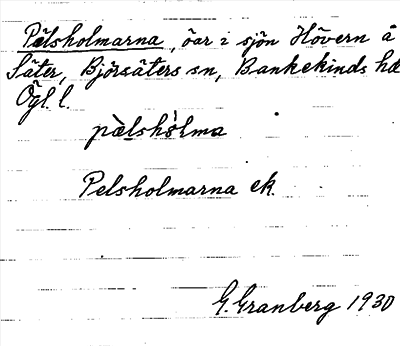 Pälsholmarna, öar i sjön Hövern å
Säter, Björsäters sn, Bankekinds hd
Ögl. l.
pæ̀lshòlma
Pelsholmarna ek.
G. Granberg 1930